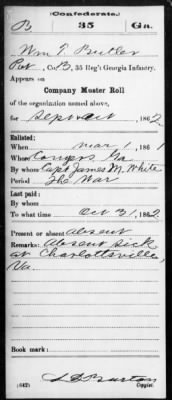 (Confederate.)
B 35 Ga.
Wm T. Butler
Pvt, Co. B, 35 Reg't Georgia Infantry.
Appears on
Company Muster Roll
of the organization named above,
for Sept & Oct, 1862
Enlisted:
When 1, 1861
Where Conyers Ga
By whom Capt James M. White
Period The War
Last paid:
By whom
To what time Oct 31, 1862
Present or absent Absent
Remarks: Absent sick
at Charlottsville
Va.
Book mark:
(642) Copyist.